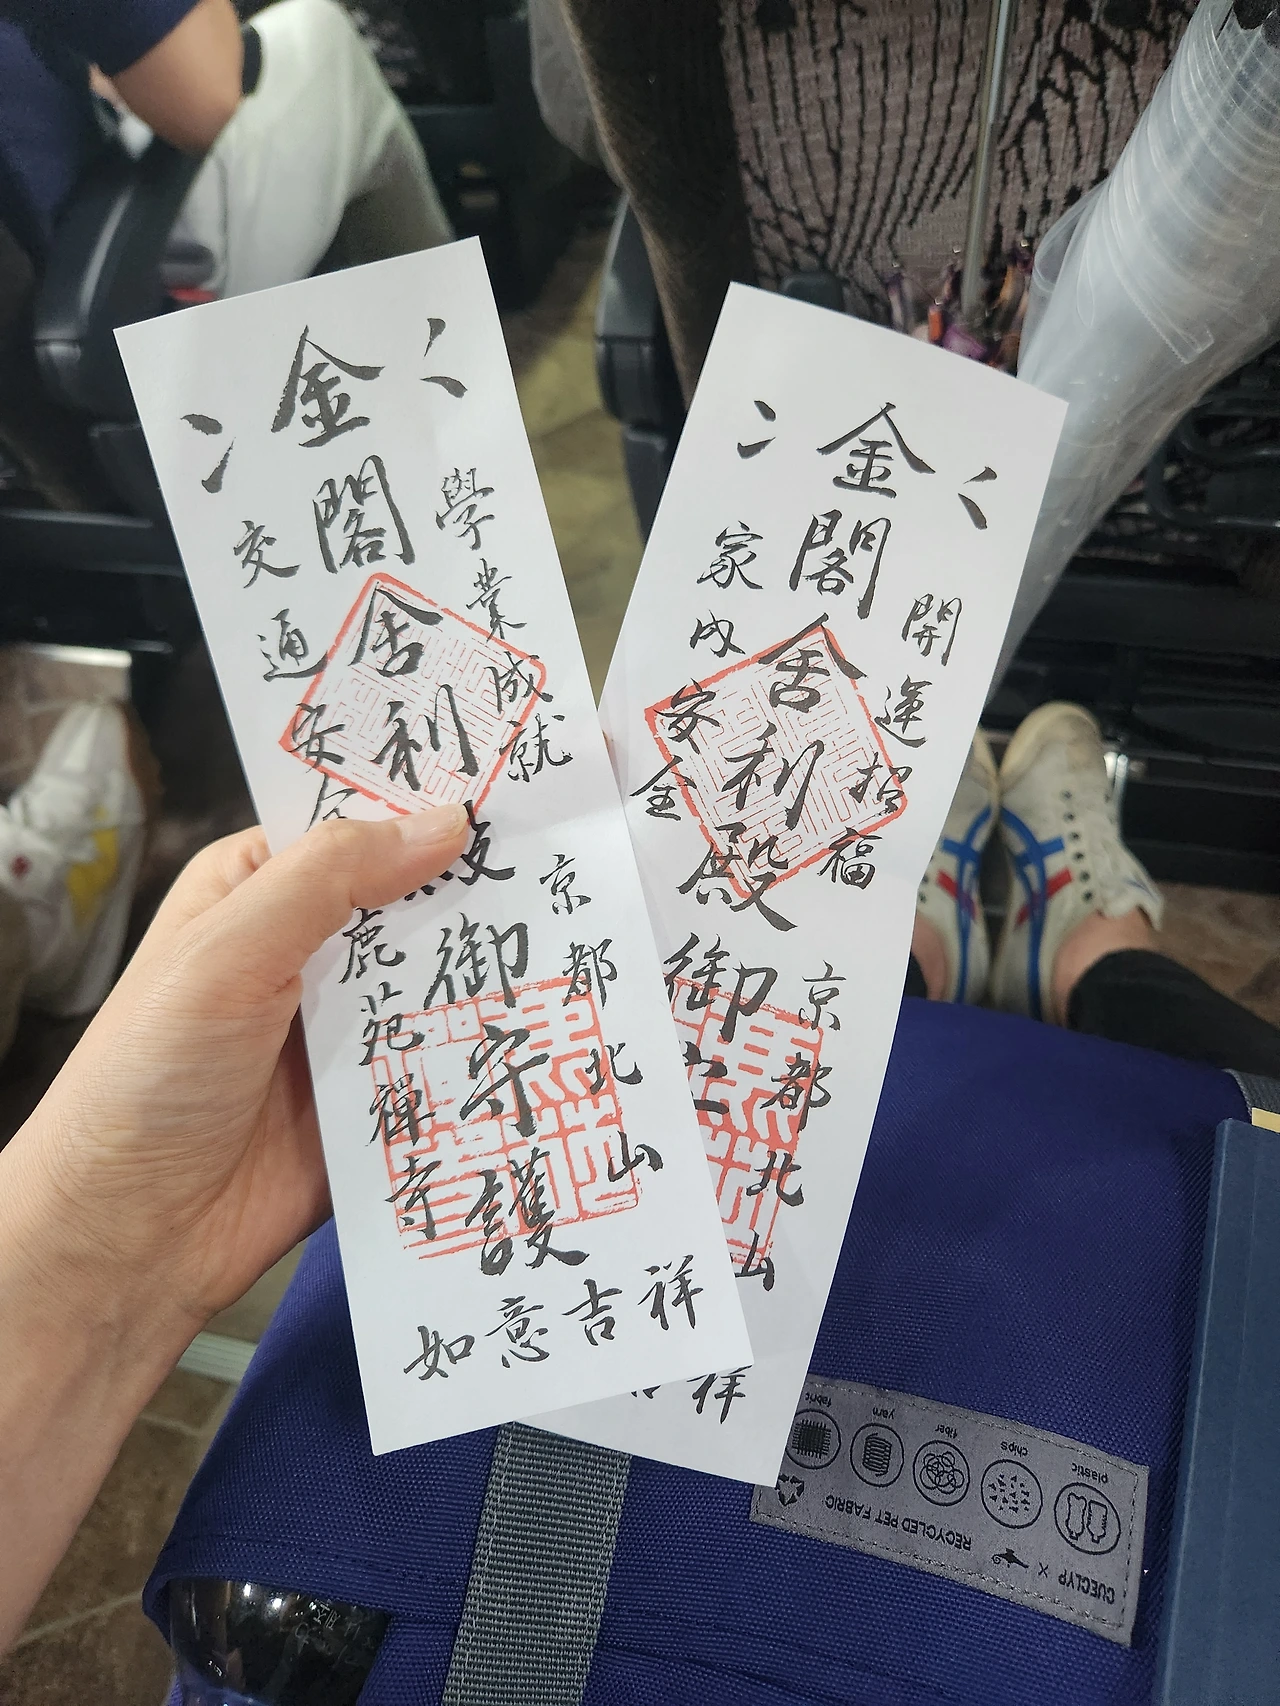 金閣舍利殿御守護
學業成就
交通安全
京都北山
鹿苑禪寺
如意吉祥
金閣舍利殿御守
開運招福
家内安全
京都北山
祥
plastic
chips
fiber
yarn
fabric
RECYCLED PET FABRIC
CUECLYP X